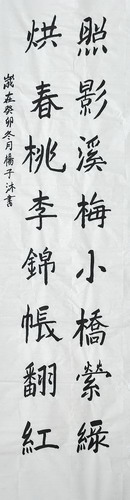 照影溪梅小橋縈綠
烘春桃李錦帳翻紅
歲在癸卯冬月楊子沐書